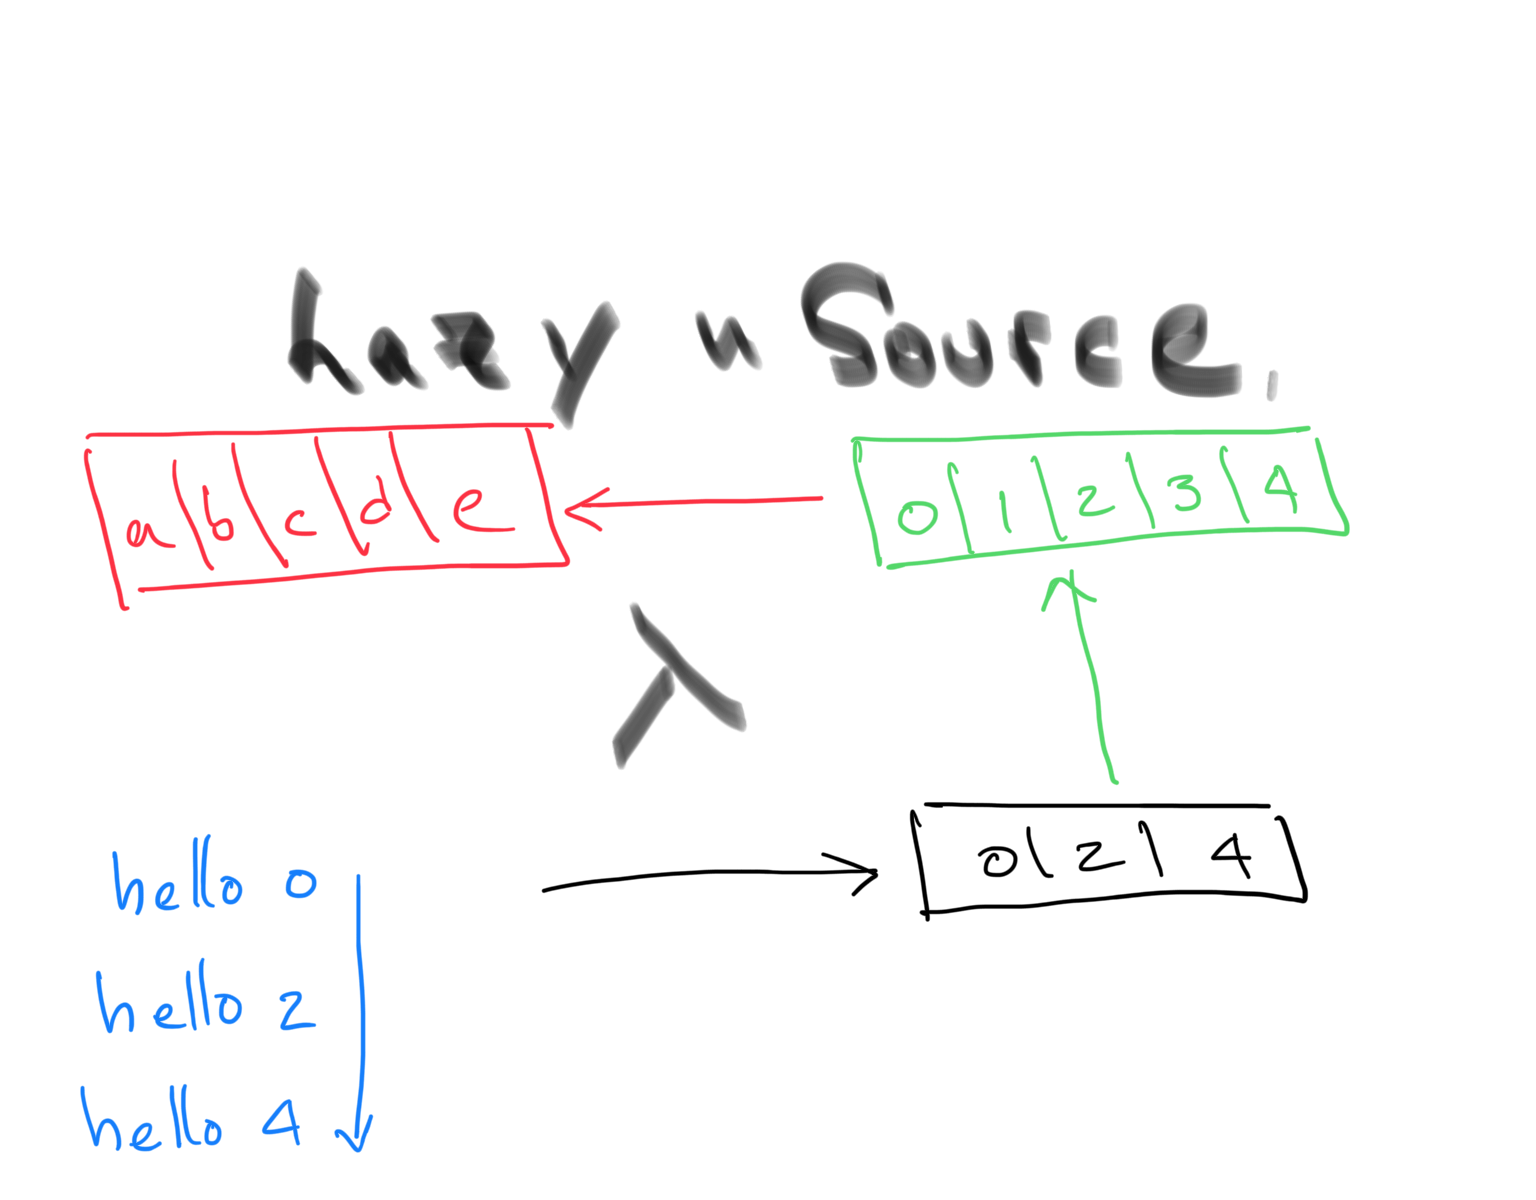 Lazy n Source.
a b c d e
0 1 2 3 4
λ
0 2 4
hello 0
hello 2
hello 4